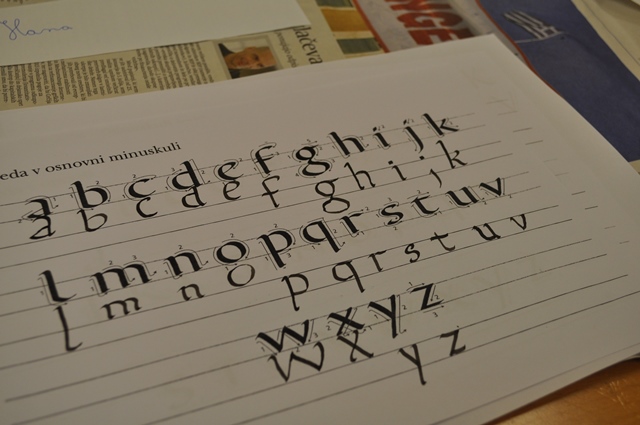 Hana
lačeva
NGE
eda v osnovni minuskuli
a b c d e f g h i j k
a b c d e f g h i j k
l m n o p q r s t u v
l m n o p q r s t u v
w x y z
w x y z